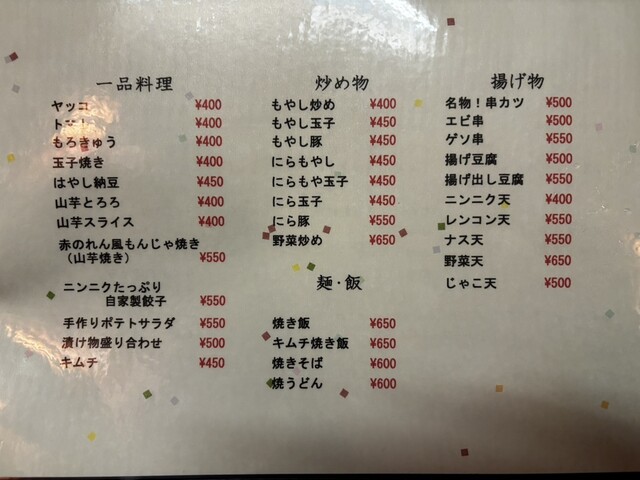 一品料理
ヤッコ ¥400
¥400
もろきゅう ¥400
玉子焼き ¥400
はやし納豆 ¥450
山芋とろろ ¥400
山芋スライス ¥400
赤のれん風もんじゃ焼き
（山芋焼き） ¥550
ニンニクたっぷり
自家製餃子 ¥550
手作りポテトサラダ ¥550
漬け物盛り合わせ ¥500
キムチ ¥450
炒め物
もやし炒め ¥400
もやし玉子 ¥450
もやし豚 ¥450
にらもやし ¥450
にらもや玉子 ¥450
にら玉子 ¥450
にら豚 ¥550
野菜炒め ¥650
麺・飯
焼き飯 ¥650
キムチ焼き飯 ¥650
焼きそば ¥600
焼うどん ¥600
揚げ物
名物！串カツ ¥500
エビ串 ¥500
ゲソ串 ¥550
揚げ豆腐 ¥500
揚げ出し豆腐 ¥550
ニンニク天 ¥400
レンコン天 ¥550
ナス天 ¥550
野菜天 ¥650
じゃこ天 ¥500